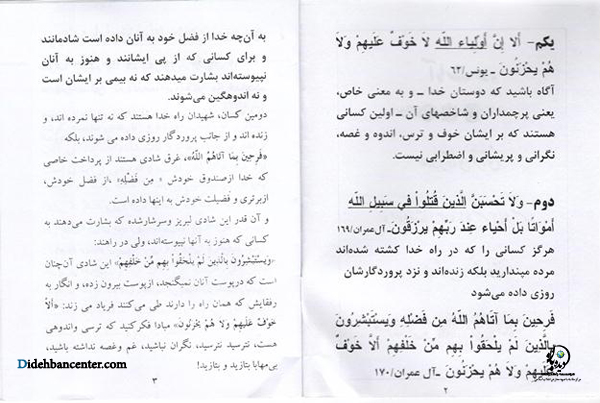 یکم- أَلا إِنَّ أَوْلِيَاء اللّهِ لاَ خَوْفٌ عَلَيْهِمْ وَلاَ
هُمْ يَحْزَنُونَ ـ یونس/۶۲
آگاه باشید که دوستان خدا ـ و به معنی خاص،
یعنی پرچمداران و شاخصهای آن ـ اولین کسانی
هستند که بر ایشان خوف و ترس، اندوه و غصه،
نگرانی و پریشانی و اضطرابی نیست.
دوم- وَلاَ تَحْسَبَنَّ الَّذِينَ قُتِلُواْ فِي سَبِيلِ اللّهِ
أَمْوَاتًا بَلْ أَحْيَاء عِندَ رَبِّهِمْ يُرْزَقُونَ-آل‌عمران/۱۶۹
هرگز کسانی را که در راه خدا کشته شده‌اند
مرده میندارید بلکه زنده‌اند و نزد پروردگارشان
روزی داده می‌شود
فَرِحِينَ بِمَا آتَاهُمُ اللّهُ مِن فَضْلِهِ وَيَسْتَبْشِرُونَ
بِالَّذِينَ لَمْ يَلْحَقُواْ بِهِم مِّنْ خَلْفِهِمْ أَلاَّ خَوْفٌ
عَلَيْهِمْ وَلاَ هُمْ يَحْزَنُونَ ـ آل عمران/۱۷۰
۲
به آن‌چه خدا از فضل خود به آنان داده است شادمانند
و برای کسانی که از پی ایشانند و هنوز به آنان
نپیوسته‌اند بشارت میدهند که نه بیمی بر ایشان است
و نه اندوهگین می‌شوند.
دومین کسان، شهیدان راه خدا هستند که نه تنها نمرده اند، و
زنده اند و از جانب پروردگار روزی داده می شوند، بلکه
«فَرِحِينَ بِمَا آتَاهُمُ اللّهُ»، غرق شادی هستند از پرداخت خاصی
که خدا ازصندوق خودش « مِن فَضْلِهِ» ،از فضل خودش،
ازبرتری و فَضیلت خودش به اینها داده است.
و آن قدر این شادی لبریز وسرشارشده که بشارت می‌دهند به
کسانی که هنوز به آنها نپیوسته‌اند، ولی در راهند:
«وَيَسْتَبْشِرُونَ بِالَّذِينَ لَمْ يَلْحَقُواْ بِهِم مِّنْ خَلْفِهِمْ» این شادی آن‌چنان
است که درپوست آنان نمیگنجد، ازپوست بیرون زده، و انگار به
رفقایش که همان راه را دارند طی می‌کنند فریاد می زند: «أَلاَّ
خَوْفٌ عَلَيْهِمْ وَلاَ هُمْ يَحْزَنُونَ» مبادا فکرکنید که ترسی واندوهی
هست، نترسید نترسید، نگران نباشید، غم وغصه نداشته باشید،
بی‌مهابا بتازید و بتازید!
۳
Didehbancenter.com